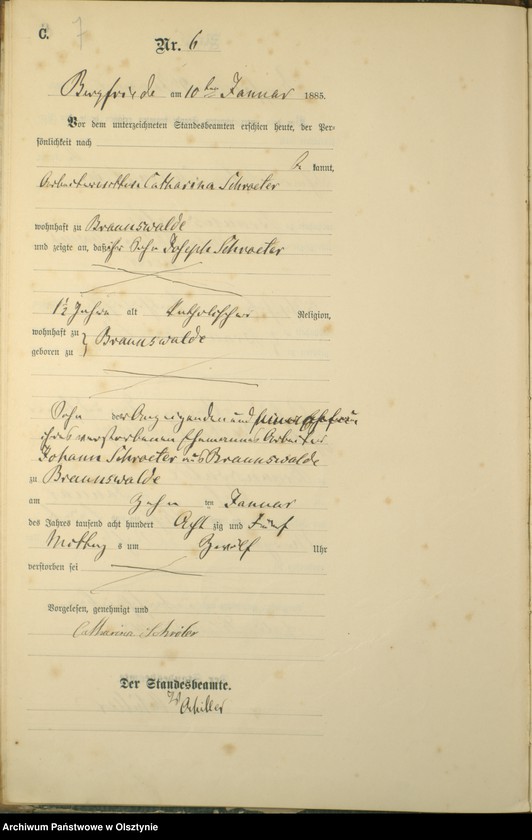 C.
7
Nr. 6
Bergfriede am 10ten Januar 1885.
Vor dem unterzeichneten Standesbeamten erschien heute, der Per-
sönlichkeit nach
be kannt,
Arbeiterwittwe Catharina Schroeter
wohnhaft zu Braunswalde
und zeigte an, daß ihr Sohn Joseph Schroeter
1½ Jahre alt katholischer Religion,
wohnhaft zu
geboren zu } Braunswalde
Sohn der Anzeigenden und seiner Ehefrau
ihres verstorbenen Ehemannes Arbeiter
Johann Schroeter aus Braunswalde
zu Braunswalde
am Zehn ten Januar
des Jahres tausend acht hundert Acht zig und Fünf
Mittag s um Zwölf Uhr
verstorben sei
Vorgelesen, genehmigt und
Catharina Schröter
Der Standesbeamte.
Schiller
Archiwum Państwowe w Olsztynie